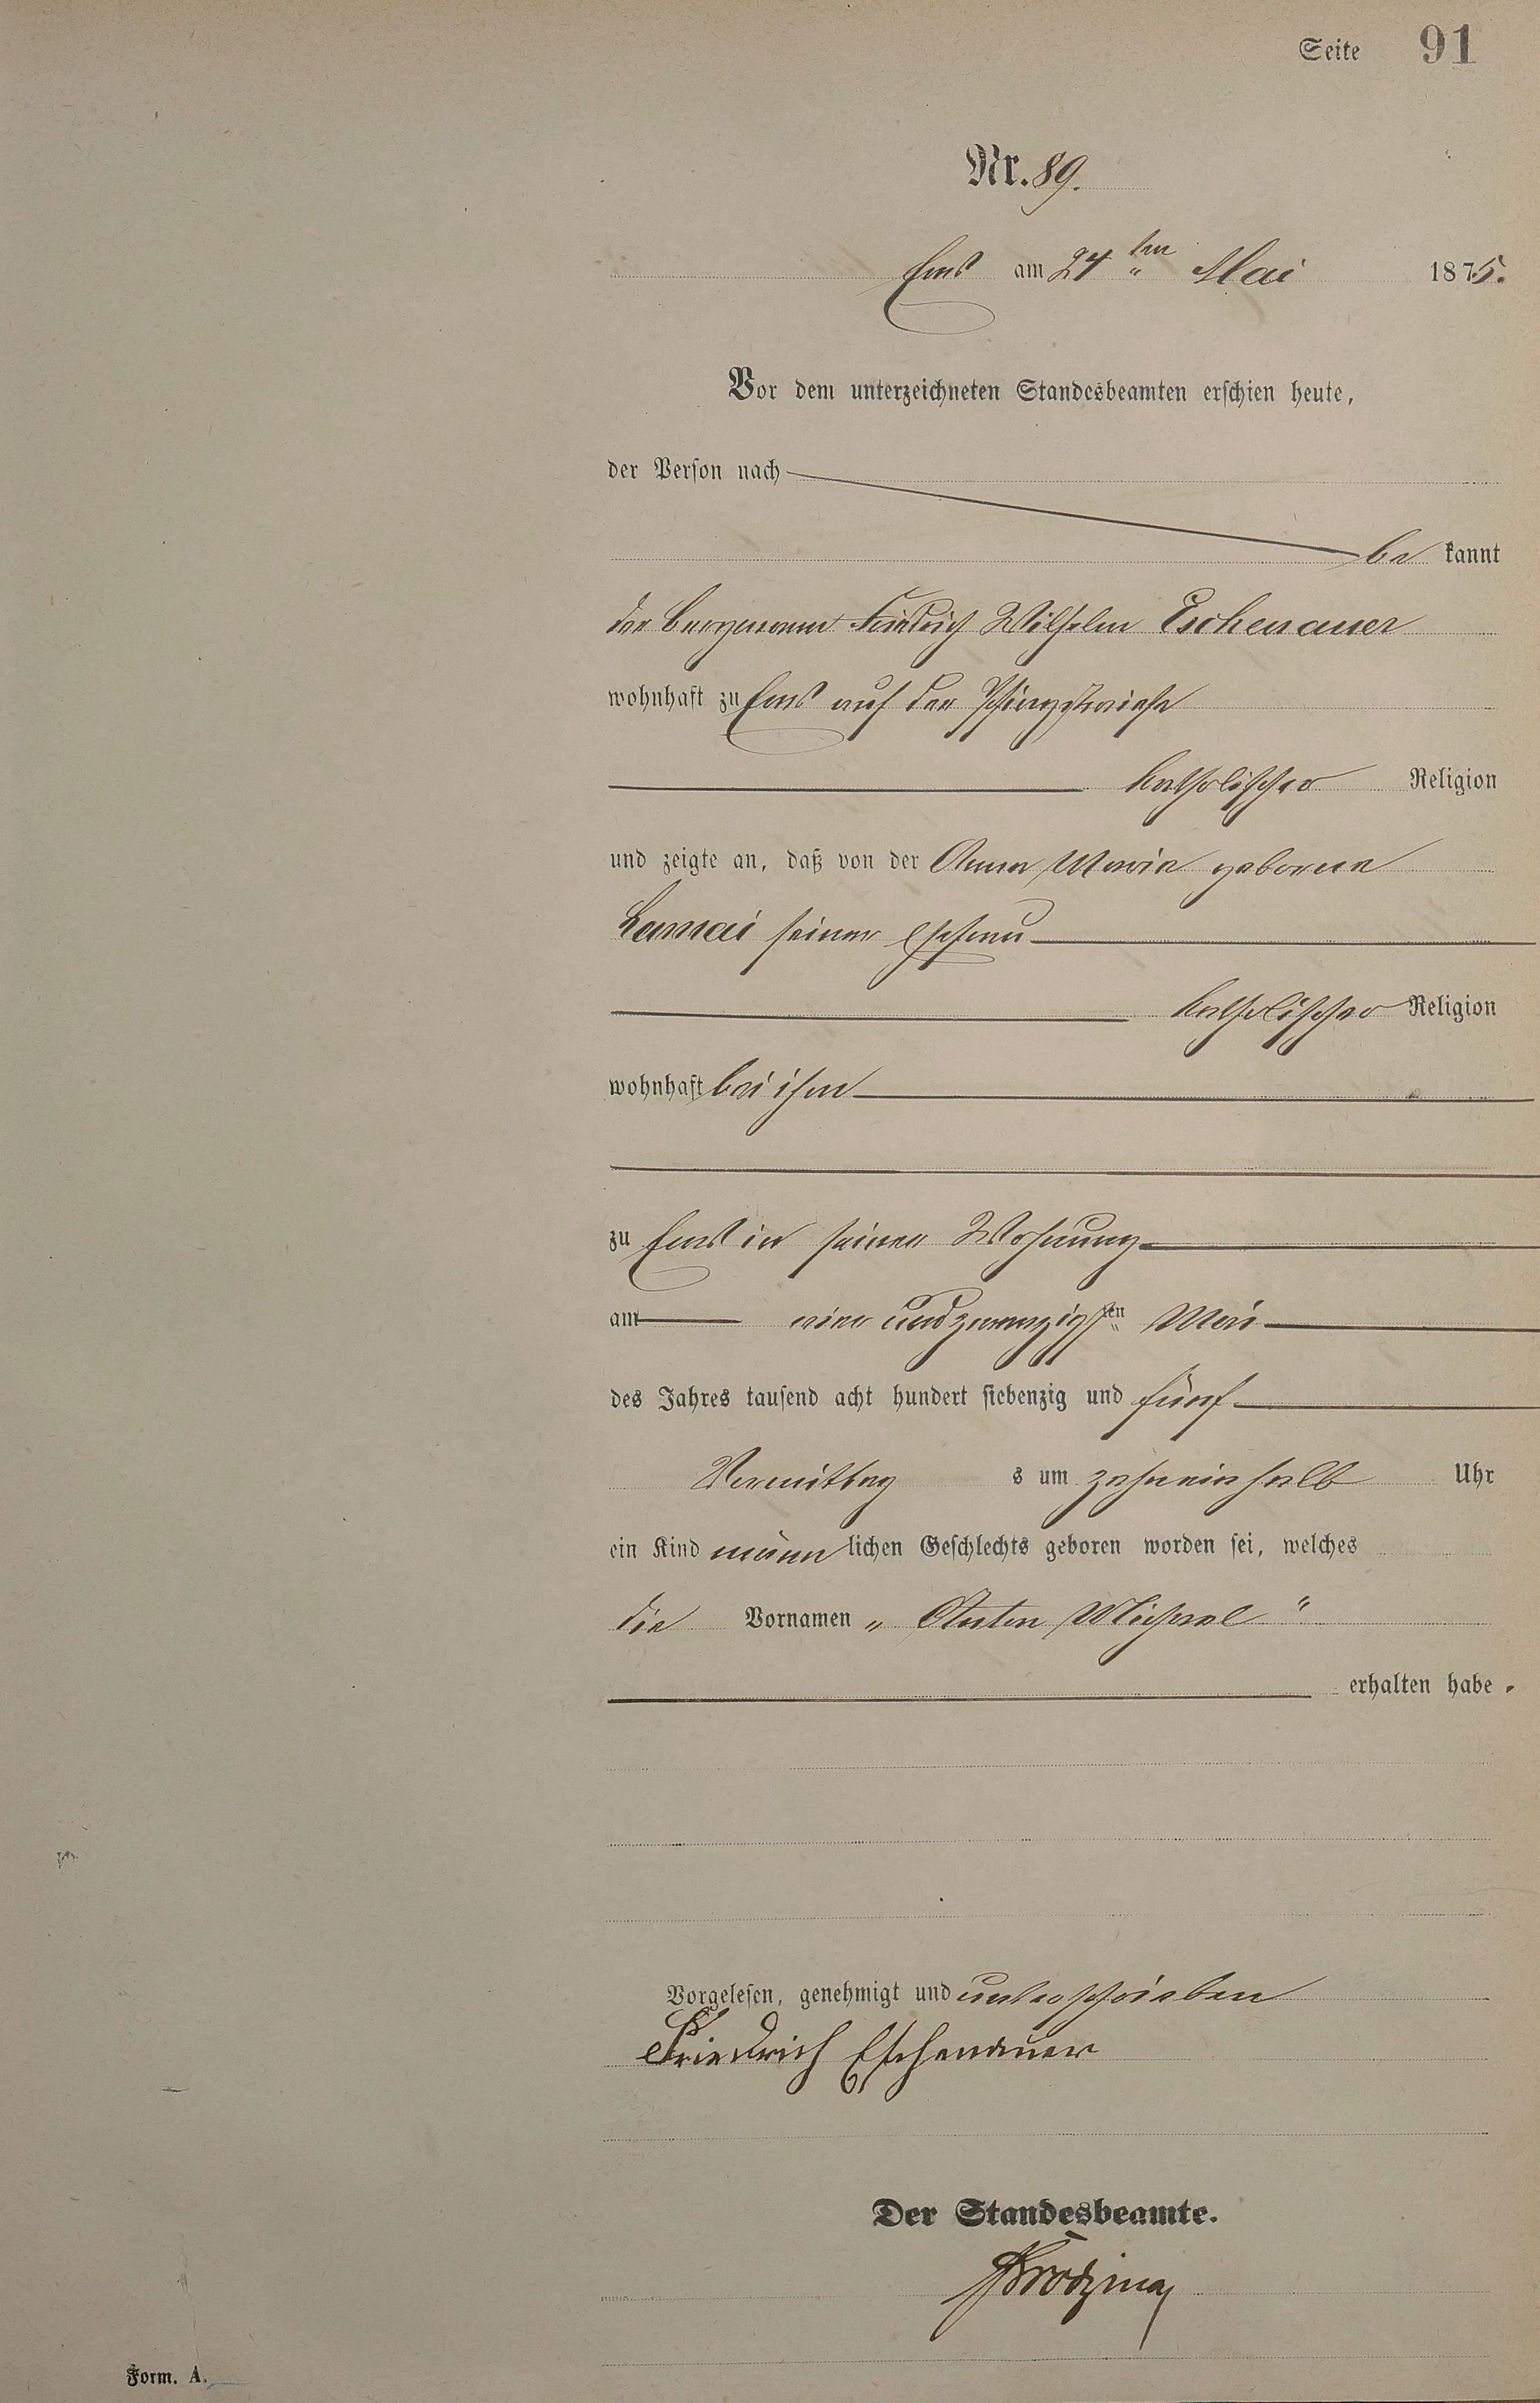 Seite 91
Nr. 89.
Ems am 24ten Mai 1875.
Vor dem unterzeichneten Standesbeamten erschien heute,
der Person nach
be kannt
der Bergmann Friedrich Wilhelm Eschenauer
wohnhaft zu Ems auf der Pfingstwiese
katholischer Religion
und zeigte an, daß von der Anna Maria geborene
Lamai seiner Ehefrau
katholischer Religion
wohnhaft bei ihm
zu Ems in seiner Wohnung
am ein und zwanzigsten Mai
des Jahres tausend acht hundert siebenzig und fünf
Vormittag s um zehn ein halb Uhr
ein Kind männ lichen Geschlechts geboren worden sei, welches
die Vornamen „ Anton Michael “
erhalten habe.
Vorgelesen, genehmigt und unterschrieben
Friedrich Eschenauer
Der Standesbeamte.
Form. A.